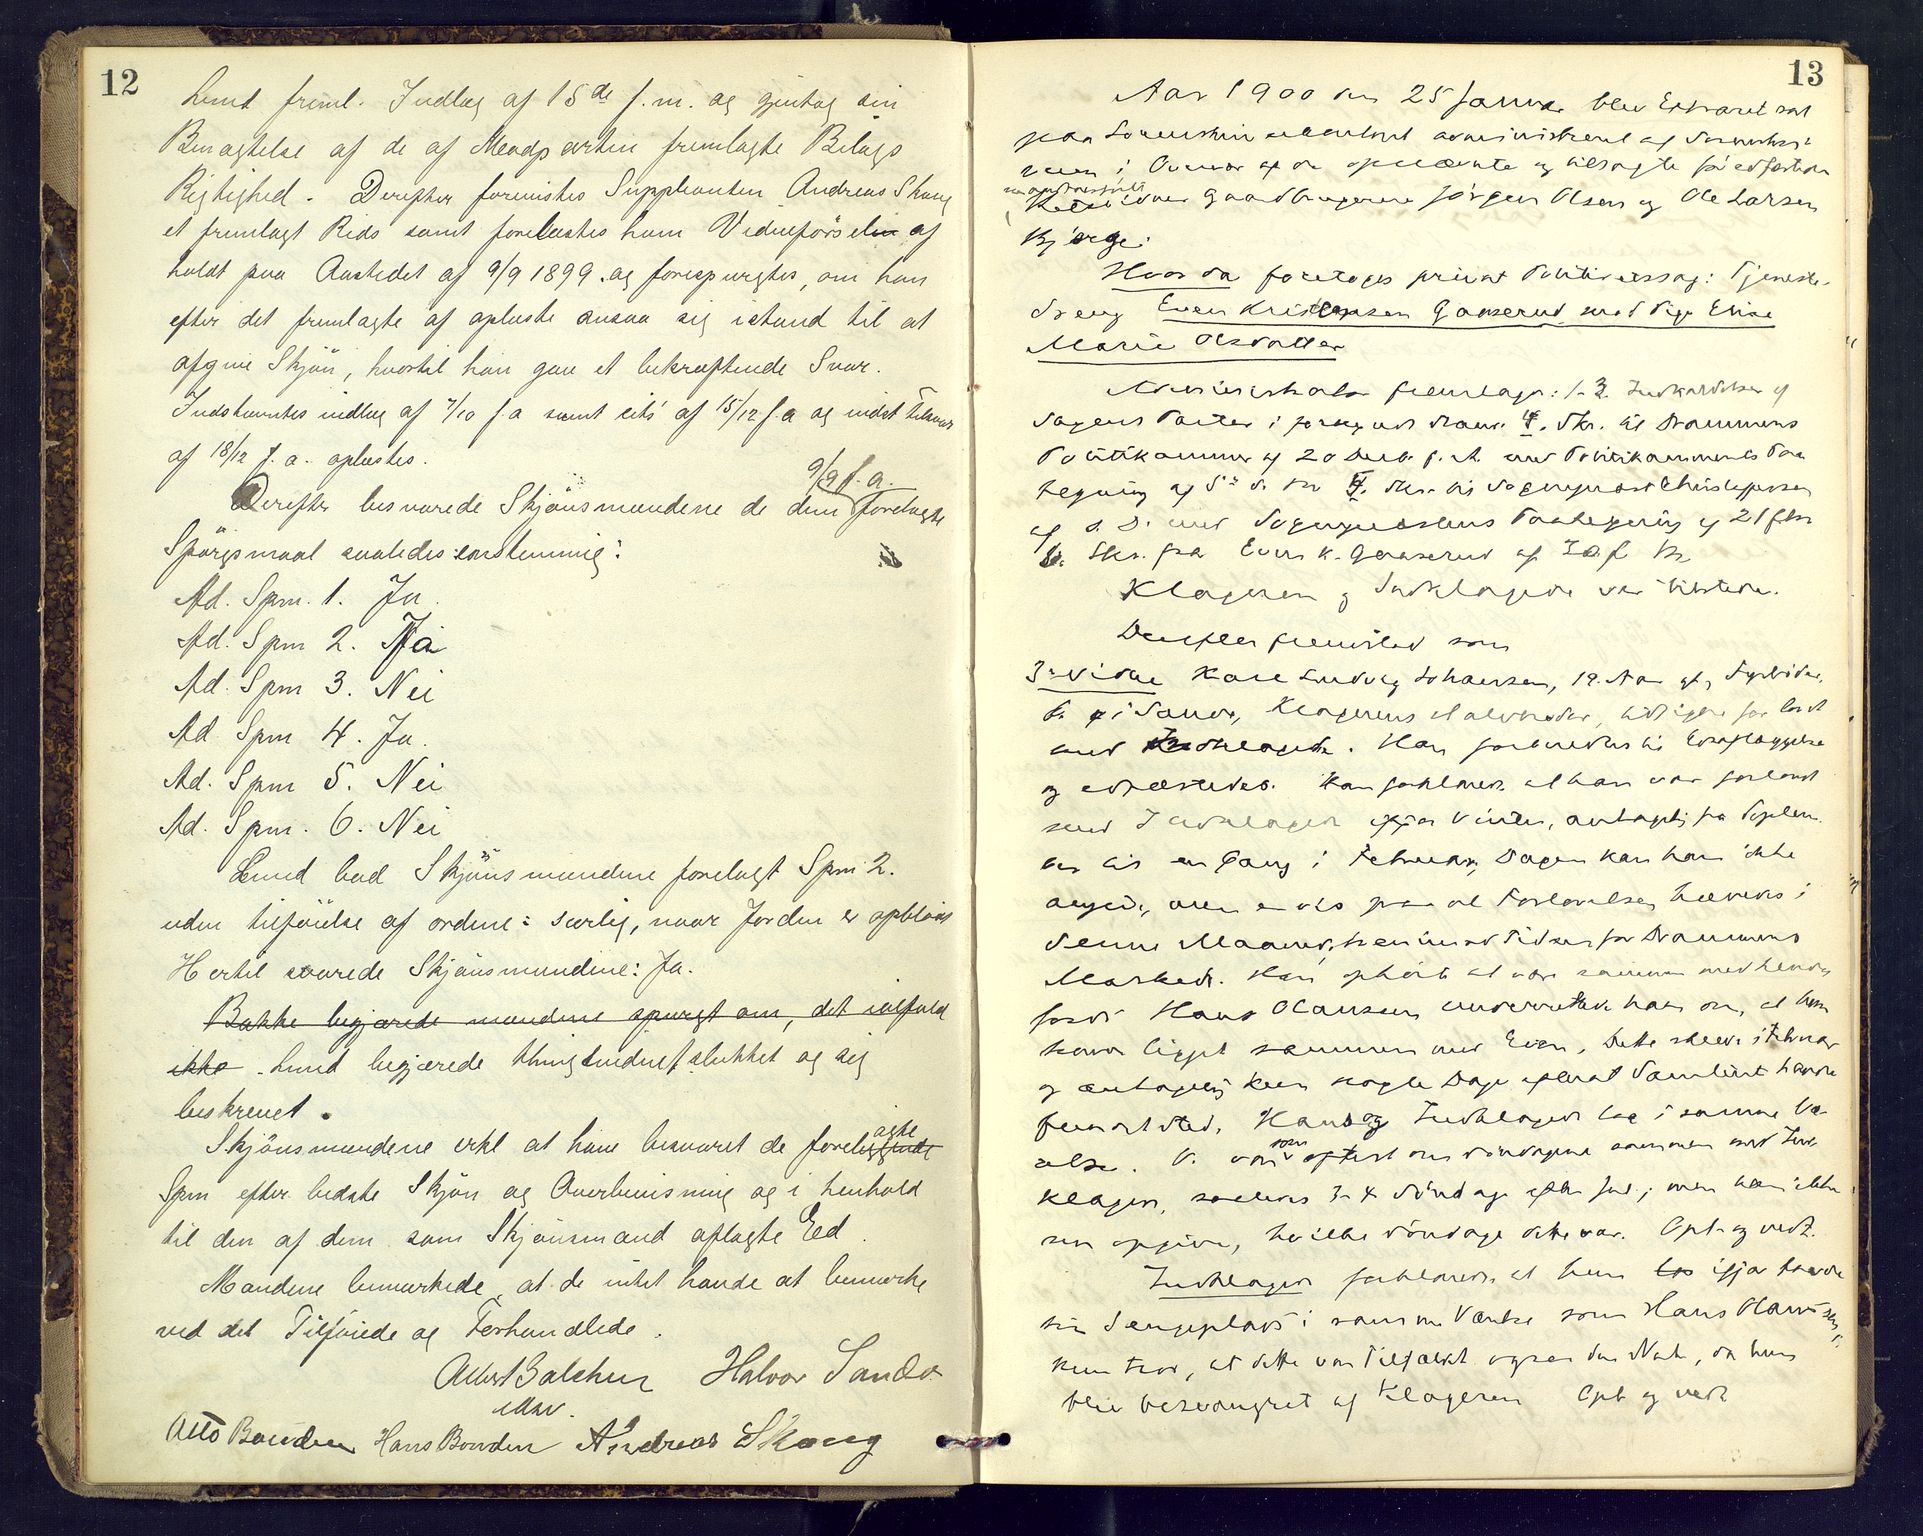 12
Lund freml. Indlæg af 15de f.m. og gjentog sin
Benægtelse af de af Modparten fremlagte Bilags
Rigtighed. Derefter forevistes Supplianten Andreas Skoug
et fremlagt Rids samt forelæstes ham Vidneførselen af
holdt paa Aastedet af 9/9 1899 og forespurgtes, om han
efter det fremlagte af oplæste ansaa sig istand til at
afgive Skjøn, hvortil han gav et bekræftende Svar.
Indstævntes indlæg af 7/10 f a samt cits' af 15/12 f.a og mdst Tilsvar
af 18/12 f. a. oplæstes.
9/9 f. a.
Derefter besvarede Skjønsmændene de dem forelagte
Spørgsmaal saaledes enstemmig:
Ad. Spm. 1. Ja.
Ad. Spm 2. Ja
Ad. Spm 3. Nei
Ad Spm 4. Ja.
Ad. Spm 5. Nei
Ad. Spm. 6. Nei
Lund bad Skjønsmændene forelagt Spm 2.
uden tilføielse af ordene: særlig, naar Jorden er opbløds
Hertil svarede Skjønsmændene: Ja.
Bakke begjærede mændene spurgt om, det ialfald
ikke. Lund begjærede thingsvidnet sluttet og sig
beskrevet.
Skjønsmændene erkl at have besvaret de foreliggende agte
Spm efter bedste Skjøn og Overbevisning og i henhold
til den af dem som Skjønsmænd aflagte Eed.
Mændene bemærkede, at de intet havde at bemærke
ved det Tilførede og Forhandlede.
Halvor Sando
Otto Bonden Hans Bonden Andreas Skoug
13
Aar 1900 den 25 Januar blev Extraret sat
paa Lensmandens administreret af Sorenskri-
veren i Overvær af de opnævnte og tilsagte før edfæstede
Gaardbrugerne Jørgen Olsen og Ole Larsen
Bjerge.
Hvor da foretoges privat Politiretssag: Tjeneste-
dreng Even Kristensen Gaaserud mod Pige Elise
Marie Olsdatter
Administrator fremlagde: 1-3. Indkaldelser af
Sagens Parter i 4. Skr. til Drammens
Politikammer af 20 Decb. f. A. med Politikammerets Paa
tegning af S. D. 5. Skr. til Sogneprest Christophersen
af s. D. med Sogneprestens Paategning af 21 f.
6. Skr. fra Even K. Gaaserud af
Klageren og Indklagede var tilstede.
Derefter fremstod som
3die Vidne Karl Ludvig Johansen, 19. Aar gl, Fyrbøder,
b. i Sande, Klagerens Halvbroder, tidligere forlovet
med Indklagede. Han forberedtes til Edsaflæggelse
og edfæstedes. Han forklarede at han var forlovet
med Indklagede ifjor Vinter, antagelig fra Septem
ber til en Gang i Februar, Dagen kan han ikke
angive, men er vis paa at Forlovelsen hævedes i
denne Maaned, henimod Tiden for Drammens
Marked. Han ophørte at være sammen med hende,
fordi Hans Olausen underrettede ham om, at hun
havde ligget sammen med Even, Dette skede i Februar
og antagelig kun nogle Dage efterat Samleiet havde
fundet sted. Hans og Indklagede laa i samme Væ
relse. V. var som oftest om Søndagene sammen med Ind
klagede, saaledes 3-4 Søndage efter Jul; men kan ikke
nu opgive, hvilke Søndage dette var. Opl. og vedt.
Indklagede forklarede at hun ifjor havde
sin Sengeplads i samme Værelse som Hans Olausen,
hun tror, at dette var Tilfældet ogsaa den Nat, da hun
blev besvangret af Klageren Opl og vedt